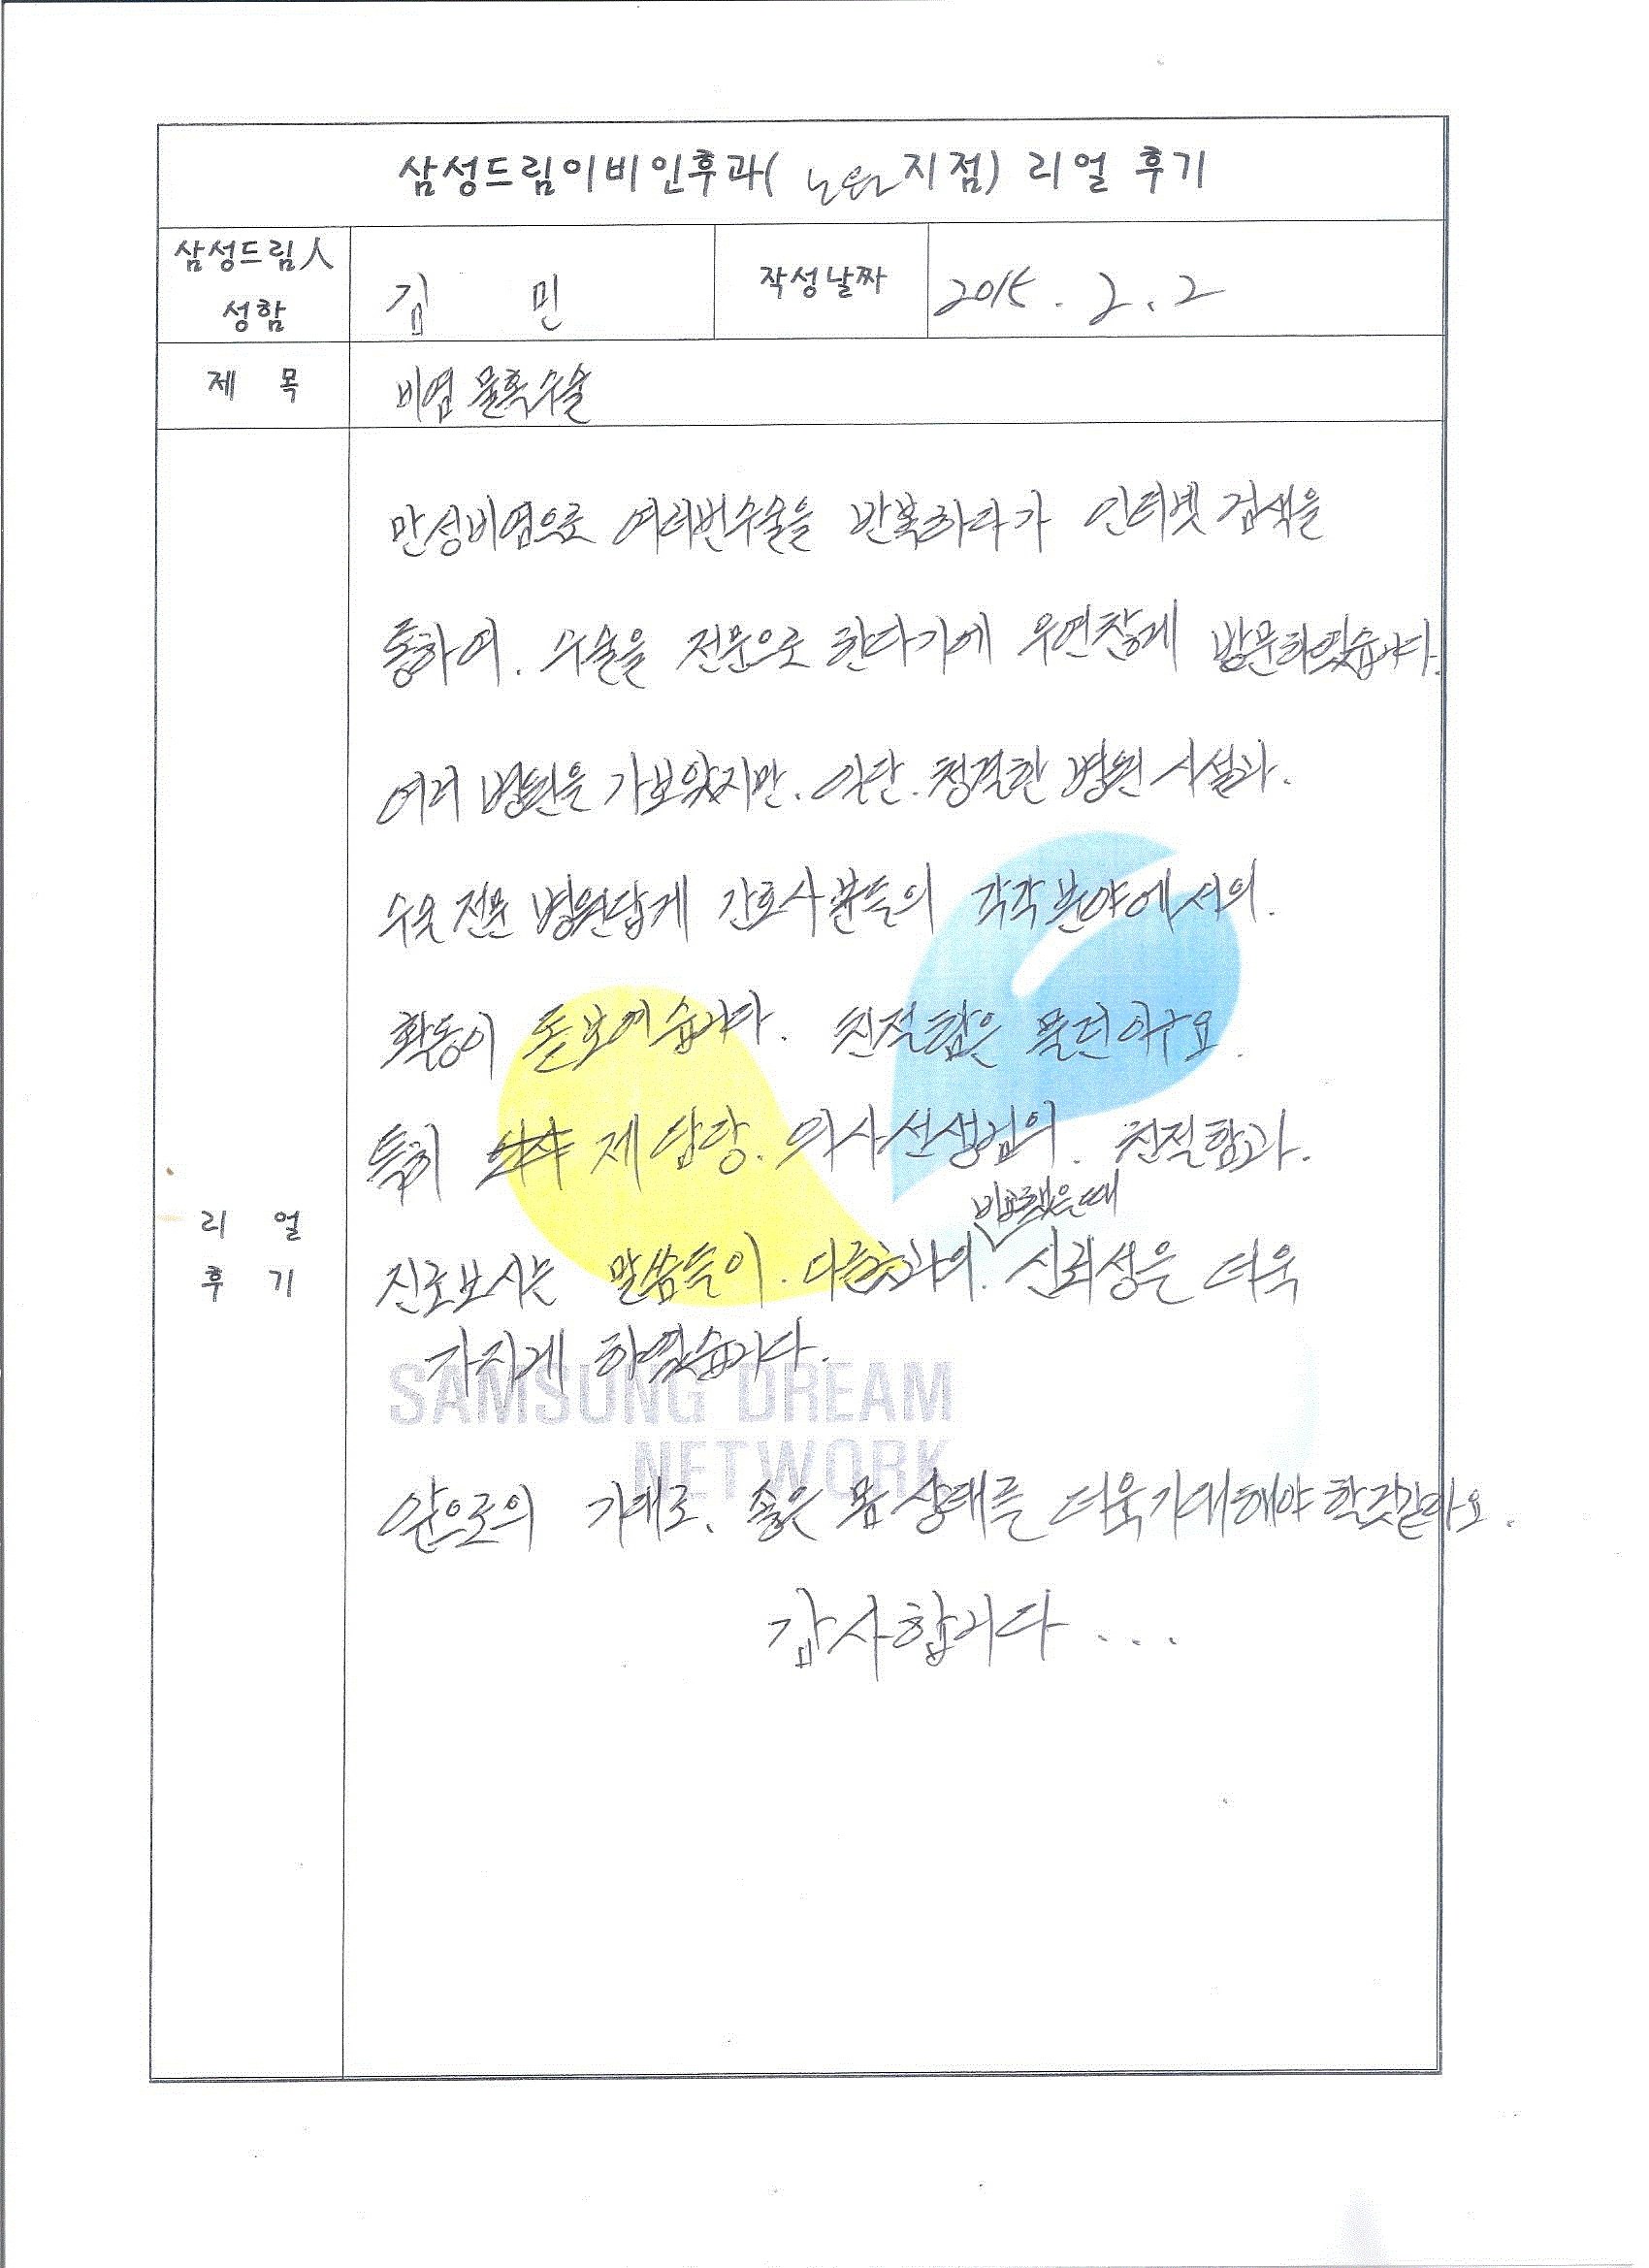 삼성드림이비인후과( 노원 지점) 리얼 후기
삼성드림人 성함
김 민
작성날짜
2015 . 2 . 2
제 목
비염 물혹수술
리 얼 후 기
만성비염으로 여러번수술을 반복하다가 인터넷 검색을
통하여. 수술을 전문으로 한다기에 우연찮게 방문하였습니다.
여러 병원을 가보았지만. 일단. 청결한 병원 시설과.
수술 전문 병원답게 간호사분들의 각각 분야에서의.
활동이 돋보여습니다. 친절함은 물런이구요.
특히 제 담당. 의사선생님의. 친절함과.
진료보시는 말씀들이. 다른 과의. 비교했을때 신뢰성은 더욱
가지게 하였습니다.
SAMSUNG DREAM
NETWORK
앞으로의 기대로. 좋은 몸 상태를 더욱기대해야 할것같아요.
감사합니다 ...